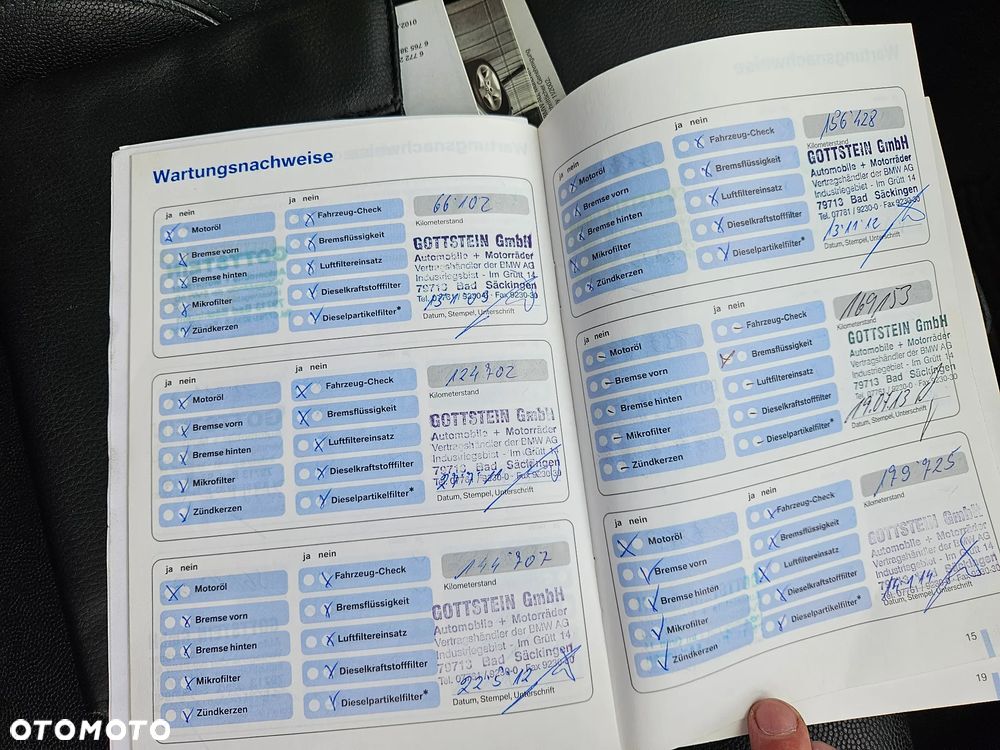 Wartungsnachweise
ja nein
Motoröl
Bremse vorn
Bremse hinten
Mikrofilter
Zündkerzen
ja nein
Fahrzeug-Check
Bremsflüssigkeit
Luftfiltereinsatz
Dieselkraftstofffilter
Dieselpartikelfilter*
66102
Kilometerstand
GOTTSTEIN GmbH
Automobile + Motorräder
Vertragshändler der BMW AG
Industriegebiet - Im Grütt 14
79713 Bad Säckingen
Tel. 07761 / 9230-0 · Fax 9230-30
Datum, Stempel, Unterschrift
ja nein
Motoröl
Bremse vorn
Bremse hinten
Mikrofilter
Zündkerzen
ja nein
Fahrzeug-Check
Bremsflüssigkeit
Luftfiltereinsatz
Dieselkraftstofffilter
Dieselpartikelfilter*
124702
Kilometerstand
GOTTSTEIN GmbH
Automobile + Motorräder
Vertragshändler der BMW AG
Industriegebiet - Im Grütt 14
79713 Bad Säckingen
Tel. 07761 / 9230-0 · Fax 9230-30
Datum, Stempel, Unterschrift
ja nein
Motoröl
Bremse vorn
Bremse hinten
Mikrofilter
Zündkerzen
ja nein
Fahrzeug-Check
Bremsflüssigkeit
Luftfiltereinsatz
Dieselkraftstofffilter
Dieselpartikelfilter*
144'707
Kilometerstand
GOTTSTEIN GmbH
Automobile + Motorräder
Vertragshändler der BMW AG
Industriegebiet - Im Grütt 14
79713 Bad Säckingen
Tel. 07761 / 9230-0 · Fax 9230-30
22 5 12
Datum, Stempel, Unterschrift
ja nein
Motoröl
Bremse vorn
Bremse hinten
Mikrofilter
Zündkerzen
ja nein
Fahrzeug-Check
Bremsflüssigkeit
Luftfiltereinsatz
Dieselkraftstofffilter
Dieselpartikelfilter*
156'428
Kilometerstand
GOTTSTEIN GmbH
Automobile + Motorräder
Vertragshändler der BMW AG
Industriegebiet - Im Grütt 14
79713 Bad Säckingen
Tel. 07761 / 9230-0 · Fax 9230-30
13 11 12
Datum, Stempel, Unterschrift
ja nein
Motoröl
Bremse vorn
Bremse hinten
Mikrofilter
Zündkerzen
ja nein
Fahrzeug-Check
Bremsflüssigkeit
Luftfiltereinsatz
Dieselkraftstofffilter
Dieselpartikelfilter*
169153
Kilometerstand
GOTTSTEIN GmbH
Automobile + Motorräder
Vertragshändler der BMW AG
Industriegebiet - Im Grütt 14
79713 Bad Säckingen
Tel. 07761 / 9230-0 · Fax 9230-30
19.07.13
Datum, Stempel, Unterschrift
ja nein
Motoröl
Bremse vorn
Bremse hinten
Mikrofilter
Zündkerzen
ja nein
Fahrzeug-Check
Bremsflüssigkeit
Luftfiltereinsatz
Dieselkraftstofffilter
Dieselpartikelfilter*
179'725
Kilometerstand
GOTTSTEIN GmbH
Automobile + Motorräder
Vertragshändler der BMW AG
Industriegebiet - Im Grütt 14
79713 Bad Säckingen
Tel. 07761 / 9230-0 · Fax 9230-30
Datum, Stempel, Unterschrift
15
19
OTOMOTO